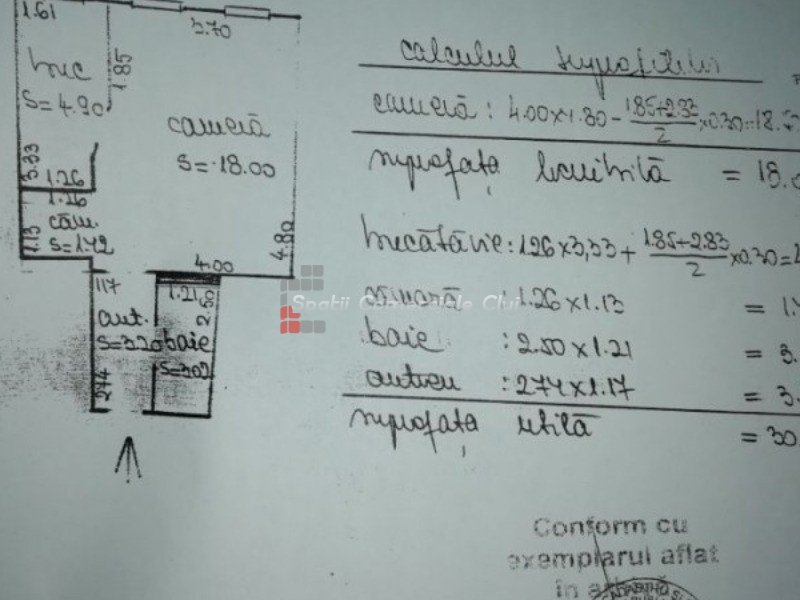 1.61
3.70
1.85
buc
S=4.90
cameră
S=18.00
3.33
1.26
1.26
căm.
S=1.42
1.13
4.80
4.00
1.17
1.21
2.50
ant.
S=3.20
baie
S=3.02
2.74
calculul suprafetelor
cameră : 4.00x4.80 - 1.85+2.83/2 x0.30=18.
suprafața locuibilă = 18.0
bucătărie : 1.26x3,33 + 1.85+2.83/2 x0.30=4
cămară : 1.26x1.13 = 1.
baie : 2.50x1.21 = 3.
antreu : 2.74x1.17 = 3.
suprafața utilă = 30
Spatii Comerciale Cluj
Conform cu
exemplarul aflat
în